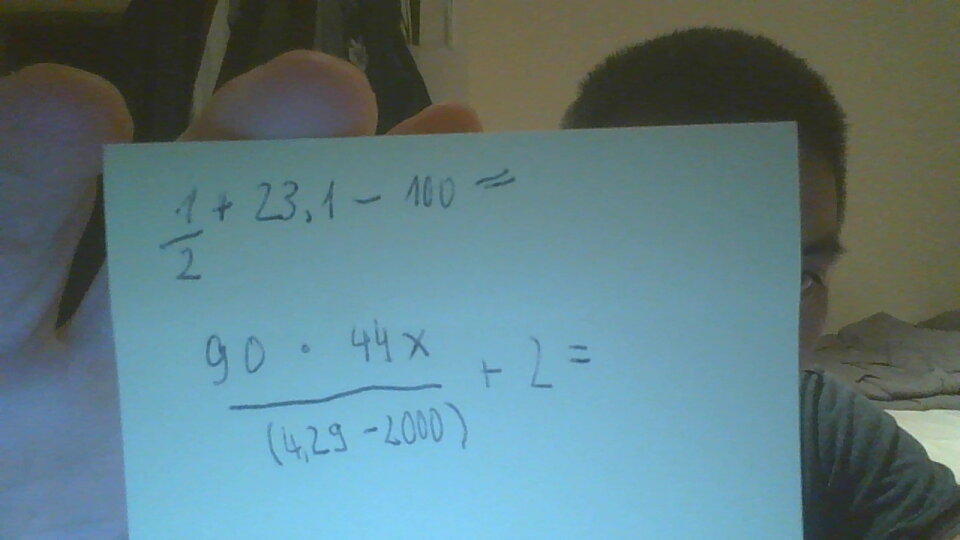 1/2 + 23,1 - 100 =
90 · 44x / (4,29 - 2000) + 2 =